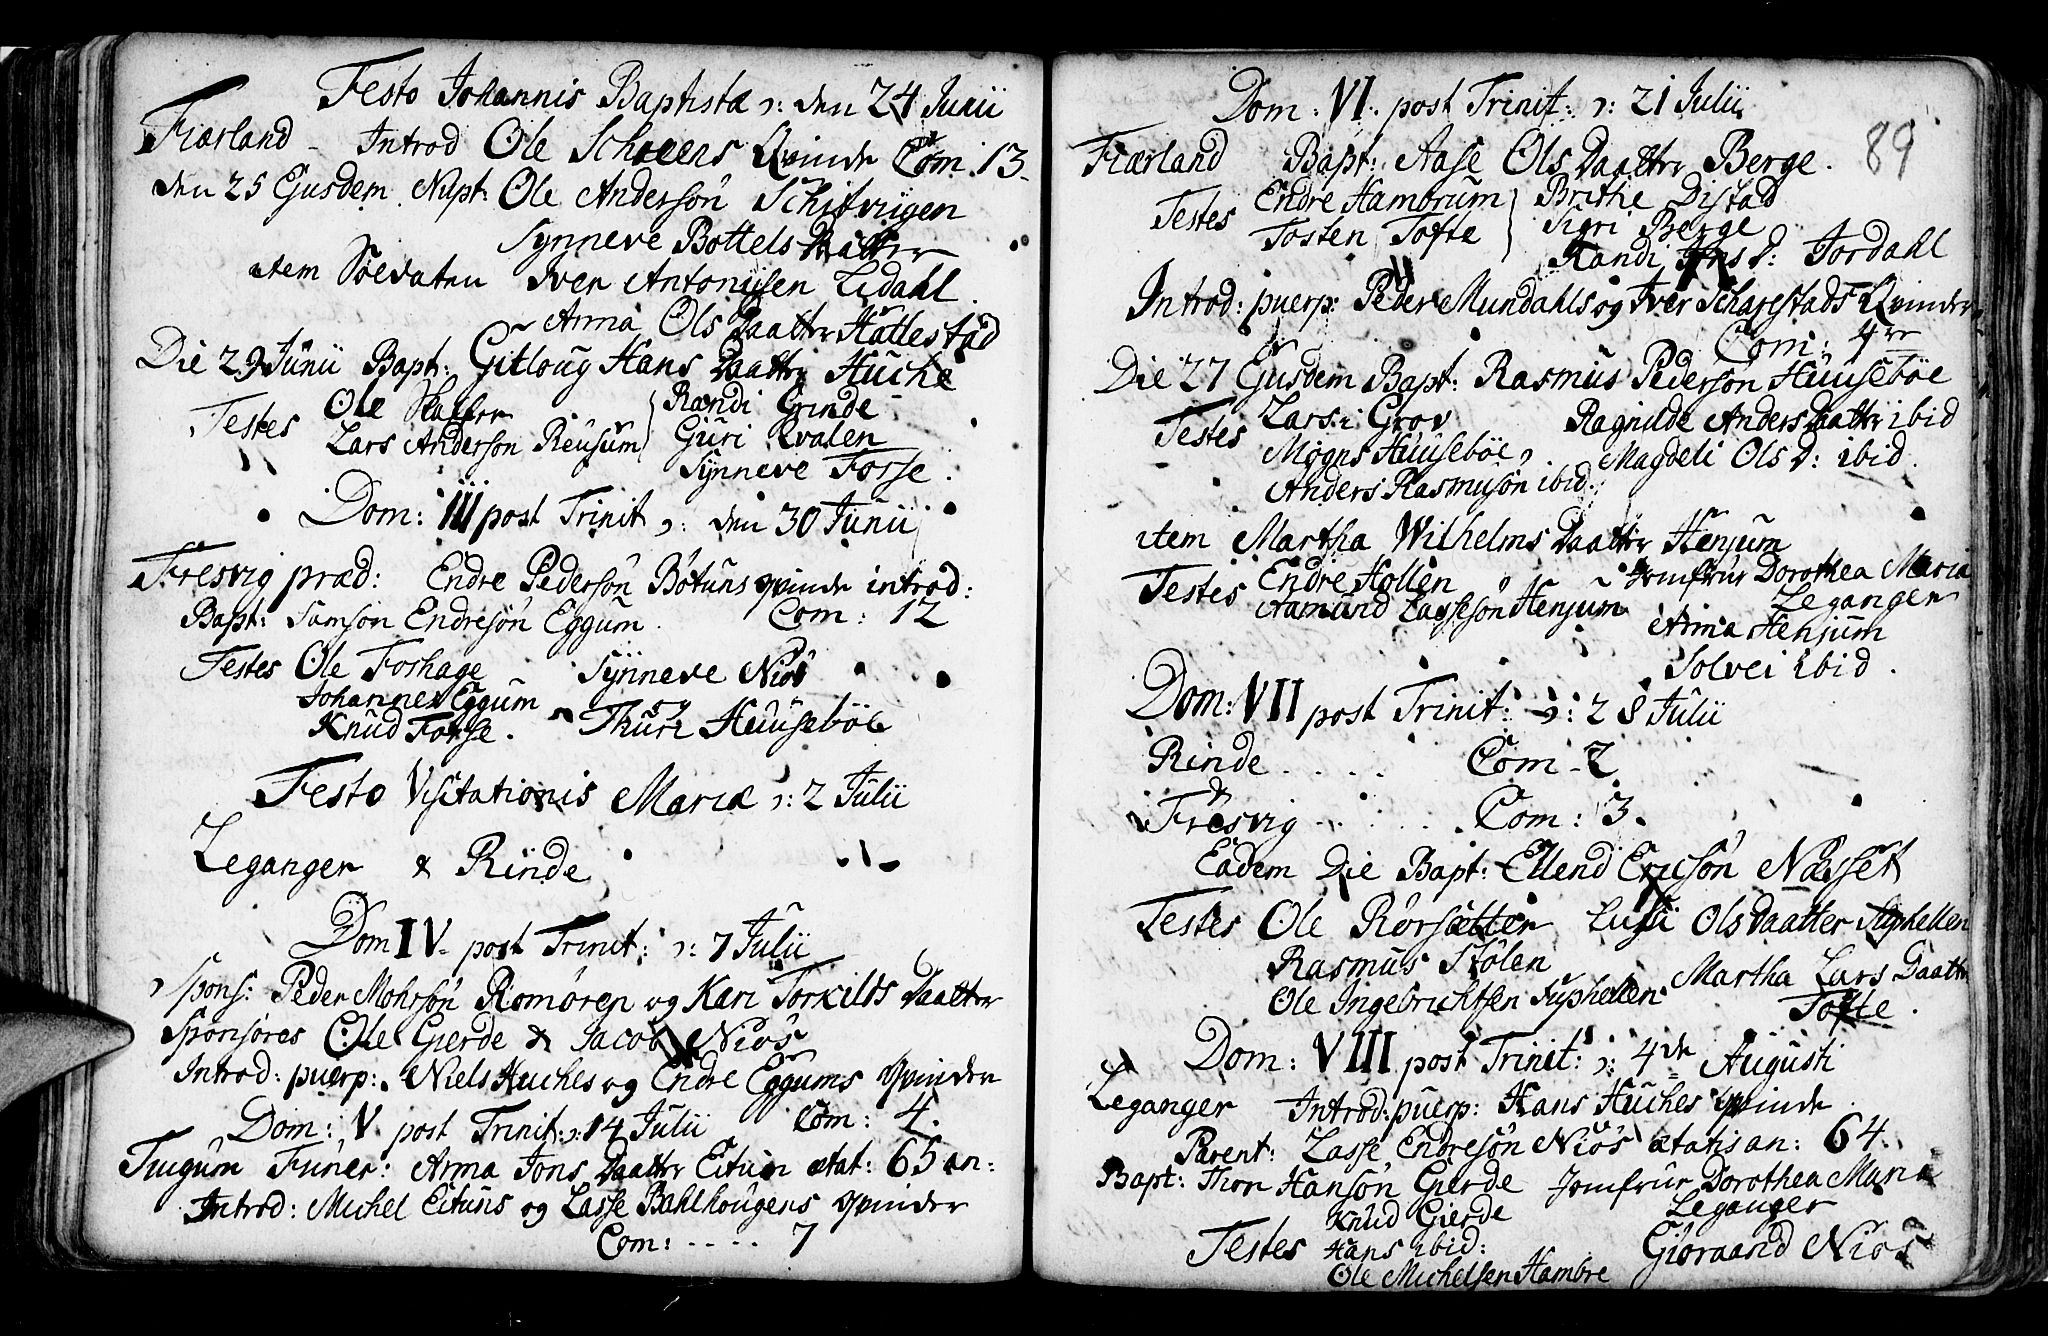 Festo Johannis Baptistæ ɔ: den 24 Junii
Fiærland - Introd Ole Scheens Qvinde Com 13
den 25 Ejusdem Nupt: Ole Andersøn
Synneve Bottels Daatter
item Soldaten Iver Antonisen Lidahl
Anna Ols Daatter Hatlestad
Die 29 Junii Bapt: Gitloug Hans Daatter Huche
Testes Ole Skatter Rændi Grinde
Lars Anderson Reusum Guri Qvalen
Synneve Forse.
Dom: III post Trinit ɔ: den 30 Junii
Fresvig præd: Endre Pedersøn Bøtuns qvinde introd:
Bapt: Samson Endresøn Eggum. Com: 12
Testes Ole Foshage Synneve Niøs
Johannes Eggum og
Knud Forse. Thuri Huusebøe
Festo Visitationis Mariæ ɔ: 2 Julii
Leganger & Rinde
Dom IV post Trinit: ɔ: 7 Julii
Spons: Peder Mohrsøn Romøren og Kari Torkilds Daatter
Sponsores Ole Gierde & Jacob Niøs
Introd: puerp: Niels Huches og Endre Eggums Qvinder
Dom: V post Trinit: ɔ: 14 Julii Com: 4.
Tiugum Funer: Anna Jons Daatter Eitun ætat: 65 an:
Introd: Michel Eituns og Lasse Bahlhougens qvinder
Com: .... 7
89
Dom: VI post Trinit: ɔ: 21 Julii
Fiærland Bapt: Aase Ols Daatter Berge.
Testes Endre Hambrum Brithe Distad
Tosten Tofte Sigri Berge
Randi Jens D: Jordahl
Introd: puerp: Peder Mundahls og Iver Scharestads Qvinder
Com: 4re
Die 27 Ejusdem Bapt: Rasmus Pedersøn Huusebøe
Testes Lars i Grov Ragnilde Anders Daatter ibid
Mogns Huusebøe, Magdeli Ols D: ibid.
Anders Rasmusøn ibid:
item Martha Wilhelms Daatter Henjum
Testes Endre Hollen Jomfrur Dorothea Maria
Aamund Lassesøn Henjum Leganger
Anna Henjum
Solvei ibid.
Dom: VII post Trinit: ɔ: 28 Julii
Rinde ..... Com - 7
&
Fresvig ..... Com: 3.
Eadem Die Bapt: Ellend Ericsøn Næsset
Testes Ole Rørsætter Lussi Ols Daatter Suphellen
Rasmus Stølen Martha Lars Daatter
Ole Ingebrichtsen Suphellen Tofte.
Dom: VIII post Trinit: ɔ: 4de Augusti
Leganger Introd: puerp: Hans Huches qvinde.
Parent: Lasse Endresøn Niøs ætatis an: 64.
Bapt: Thor Hansøn Gierde Jomfrur Dorothea Maria
Knud Gierde Leganger
Testes Hans ibid: Giøraand Niøs
Ole Michelsen Hambre